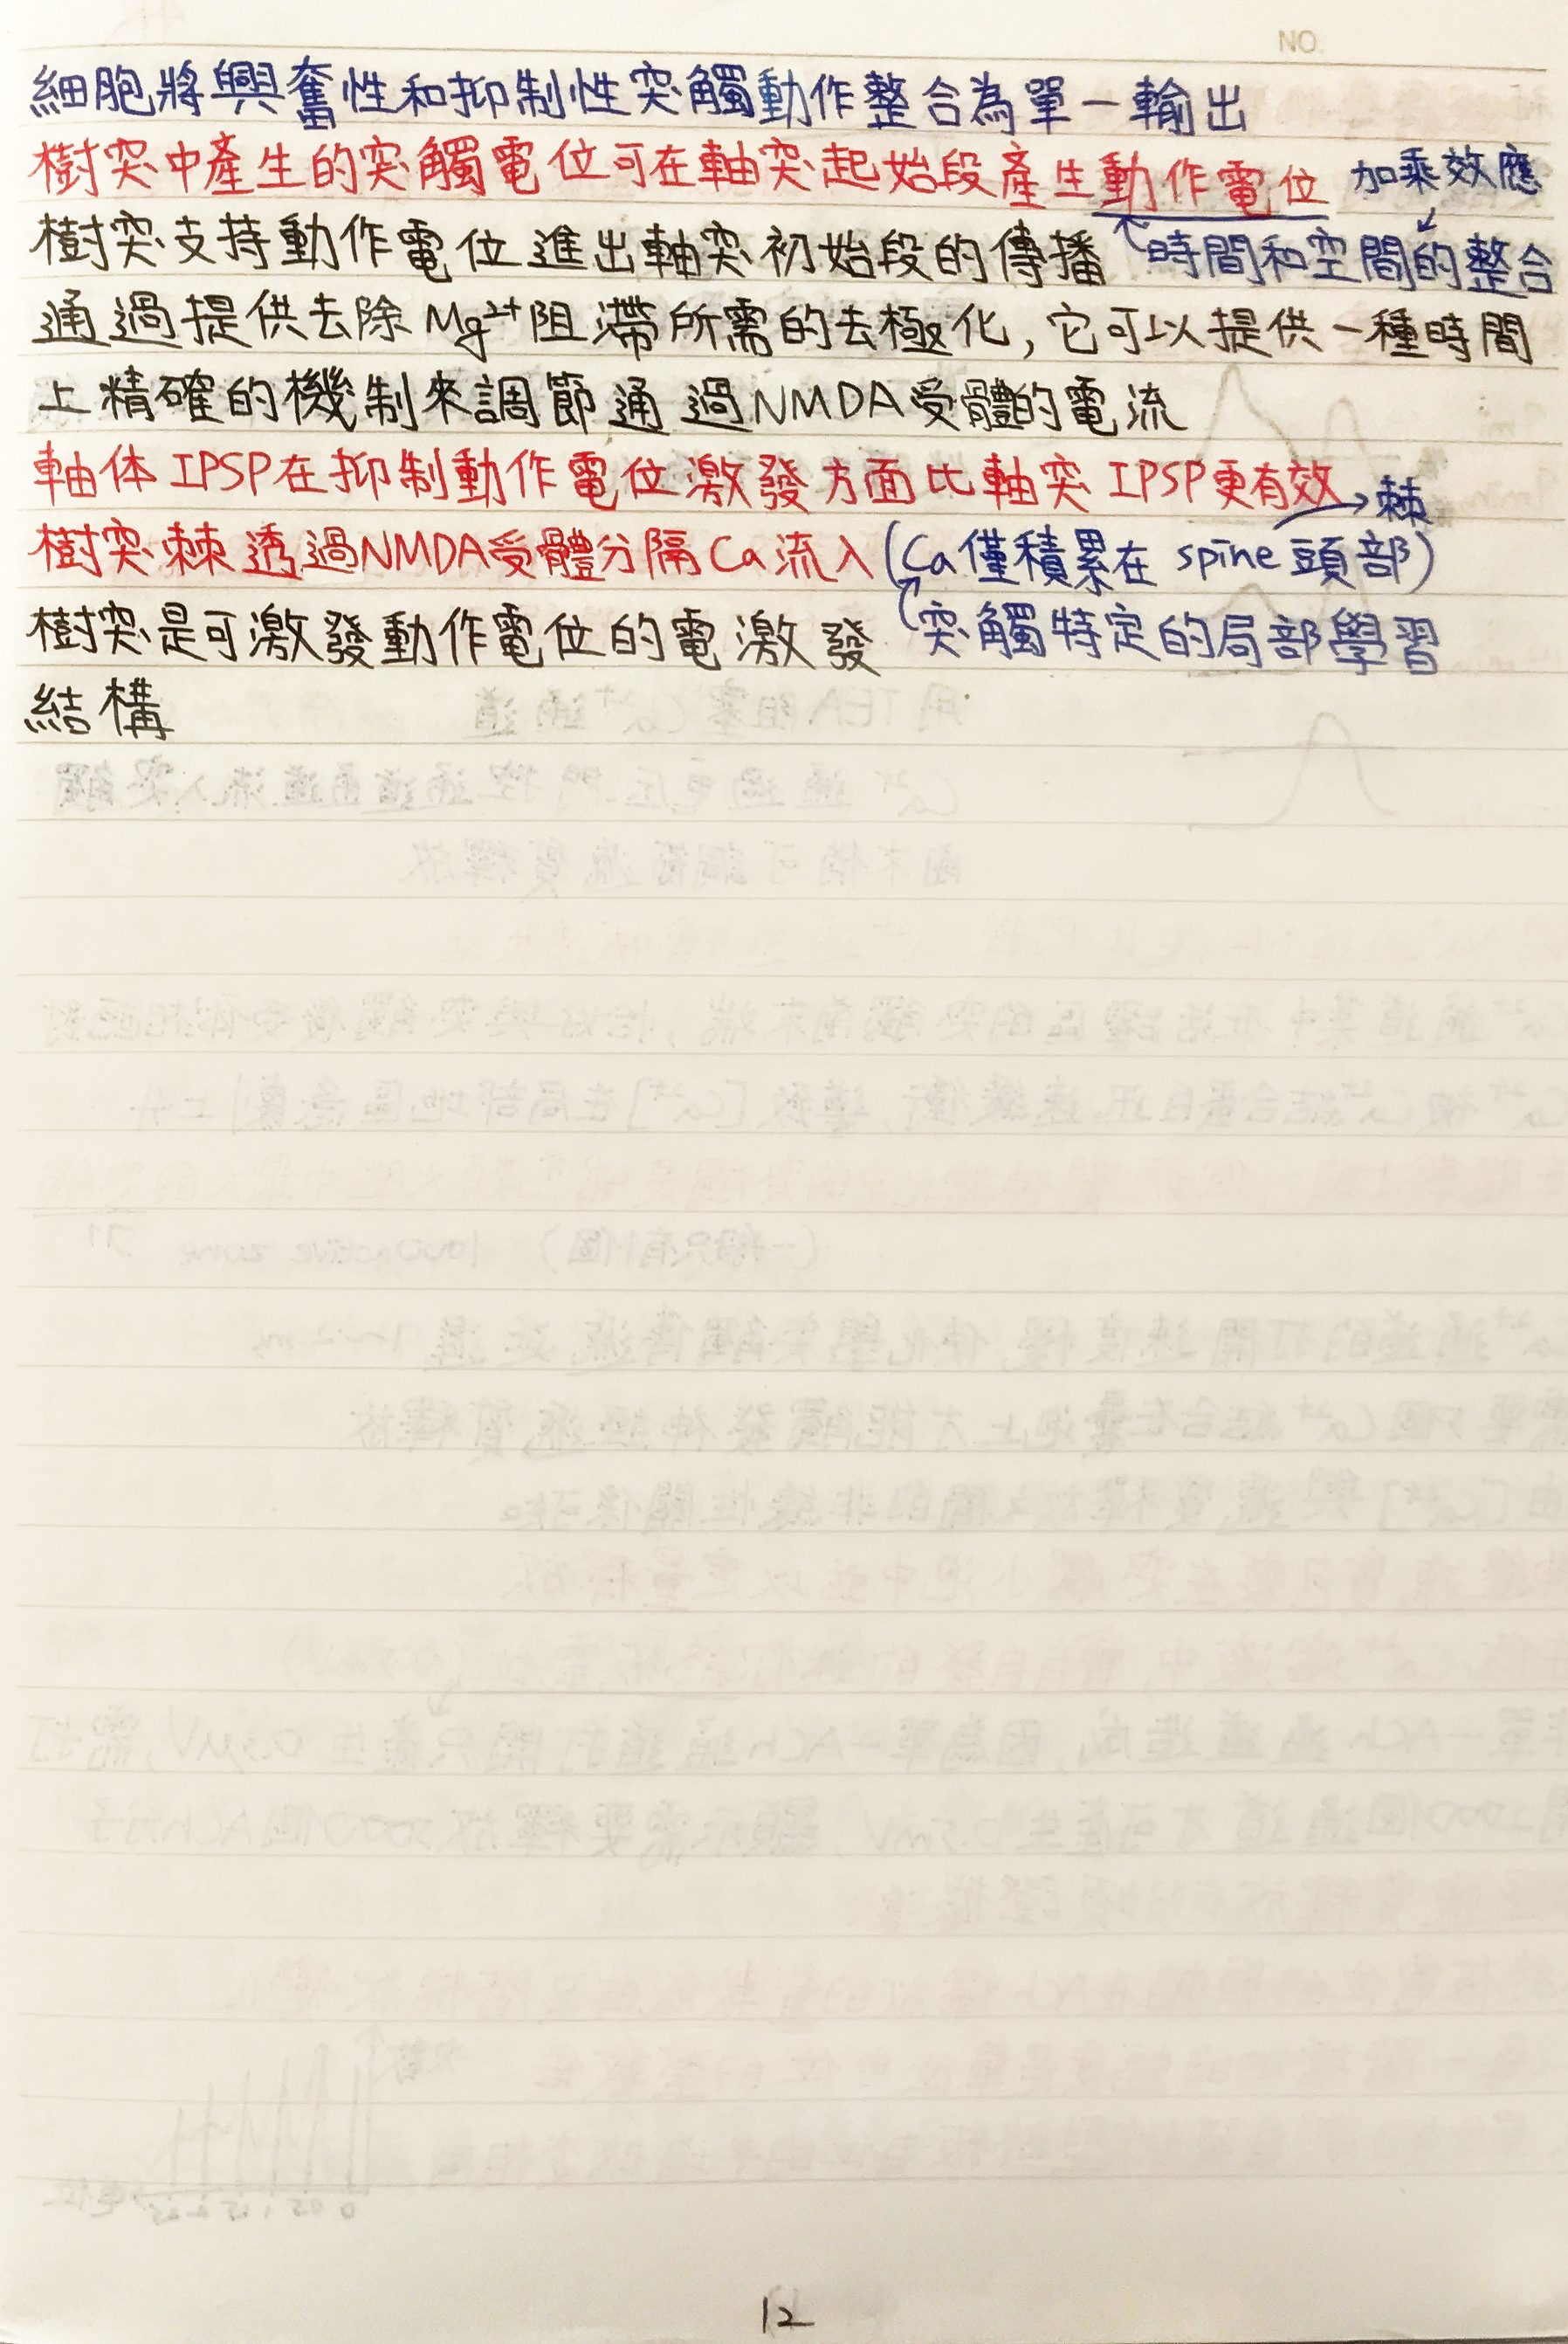 NO.
細胞將興奮性和抑制性突觸動作整合為單一輸出
樹突中產生的突觸電位可在軸突起始段產生動作電位 加乘效應
樹突支持動作電位進出軸突初始段的傳播 時間和空間的整合
通過提供去除Mg²⁺阻滯所需的去極化,它可以提供一種時間
上精確的機制來調節通過NMDA受體的電流
軸体IPSP在抑制動作電位激發方面比軸突IPSP更有效 →棘
樹突棘透過NMDA受體分隔Ca流入(Ca僅積累在spine頭部)
樹突是可激發動作電位的電激發 突觸特定的局部學習
結構
12